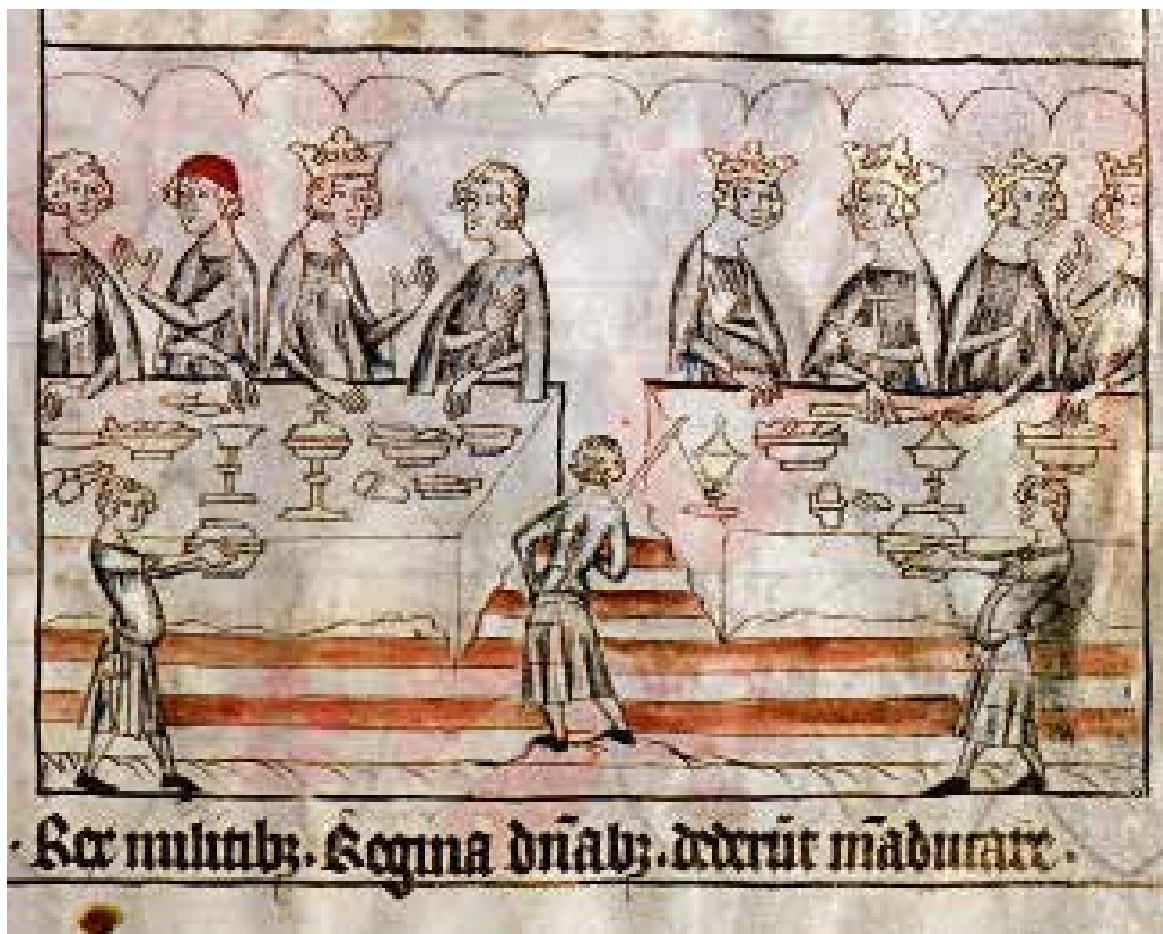 · Rex militibꝫ · Regina dn̄abꝫ · dederūt m̄aducare ·